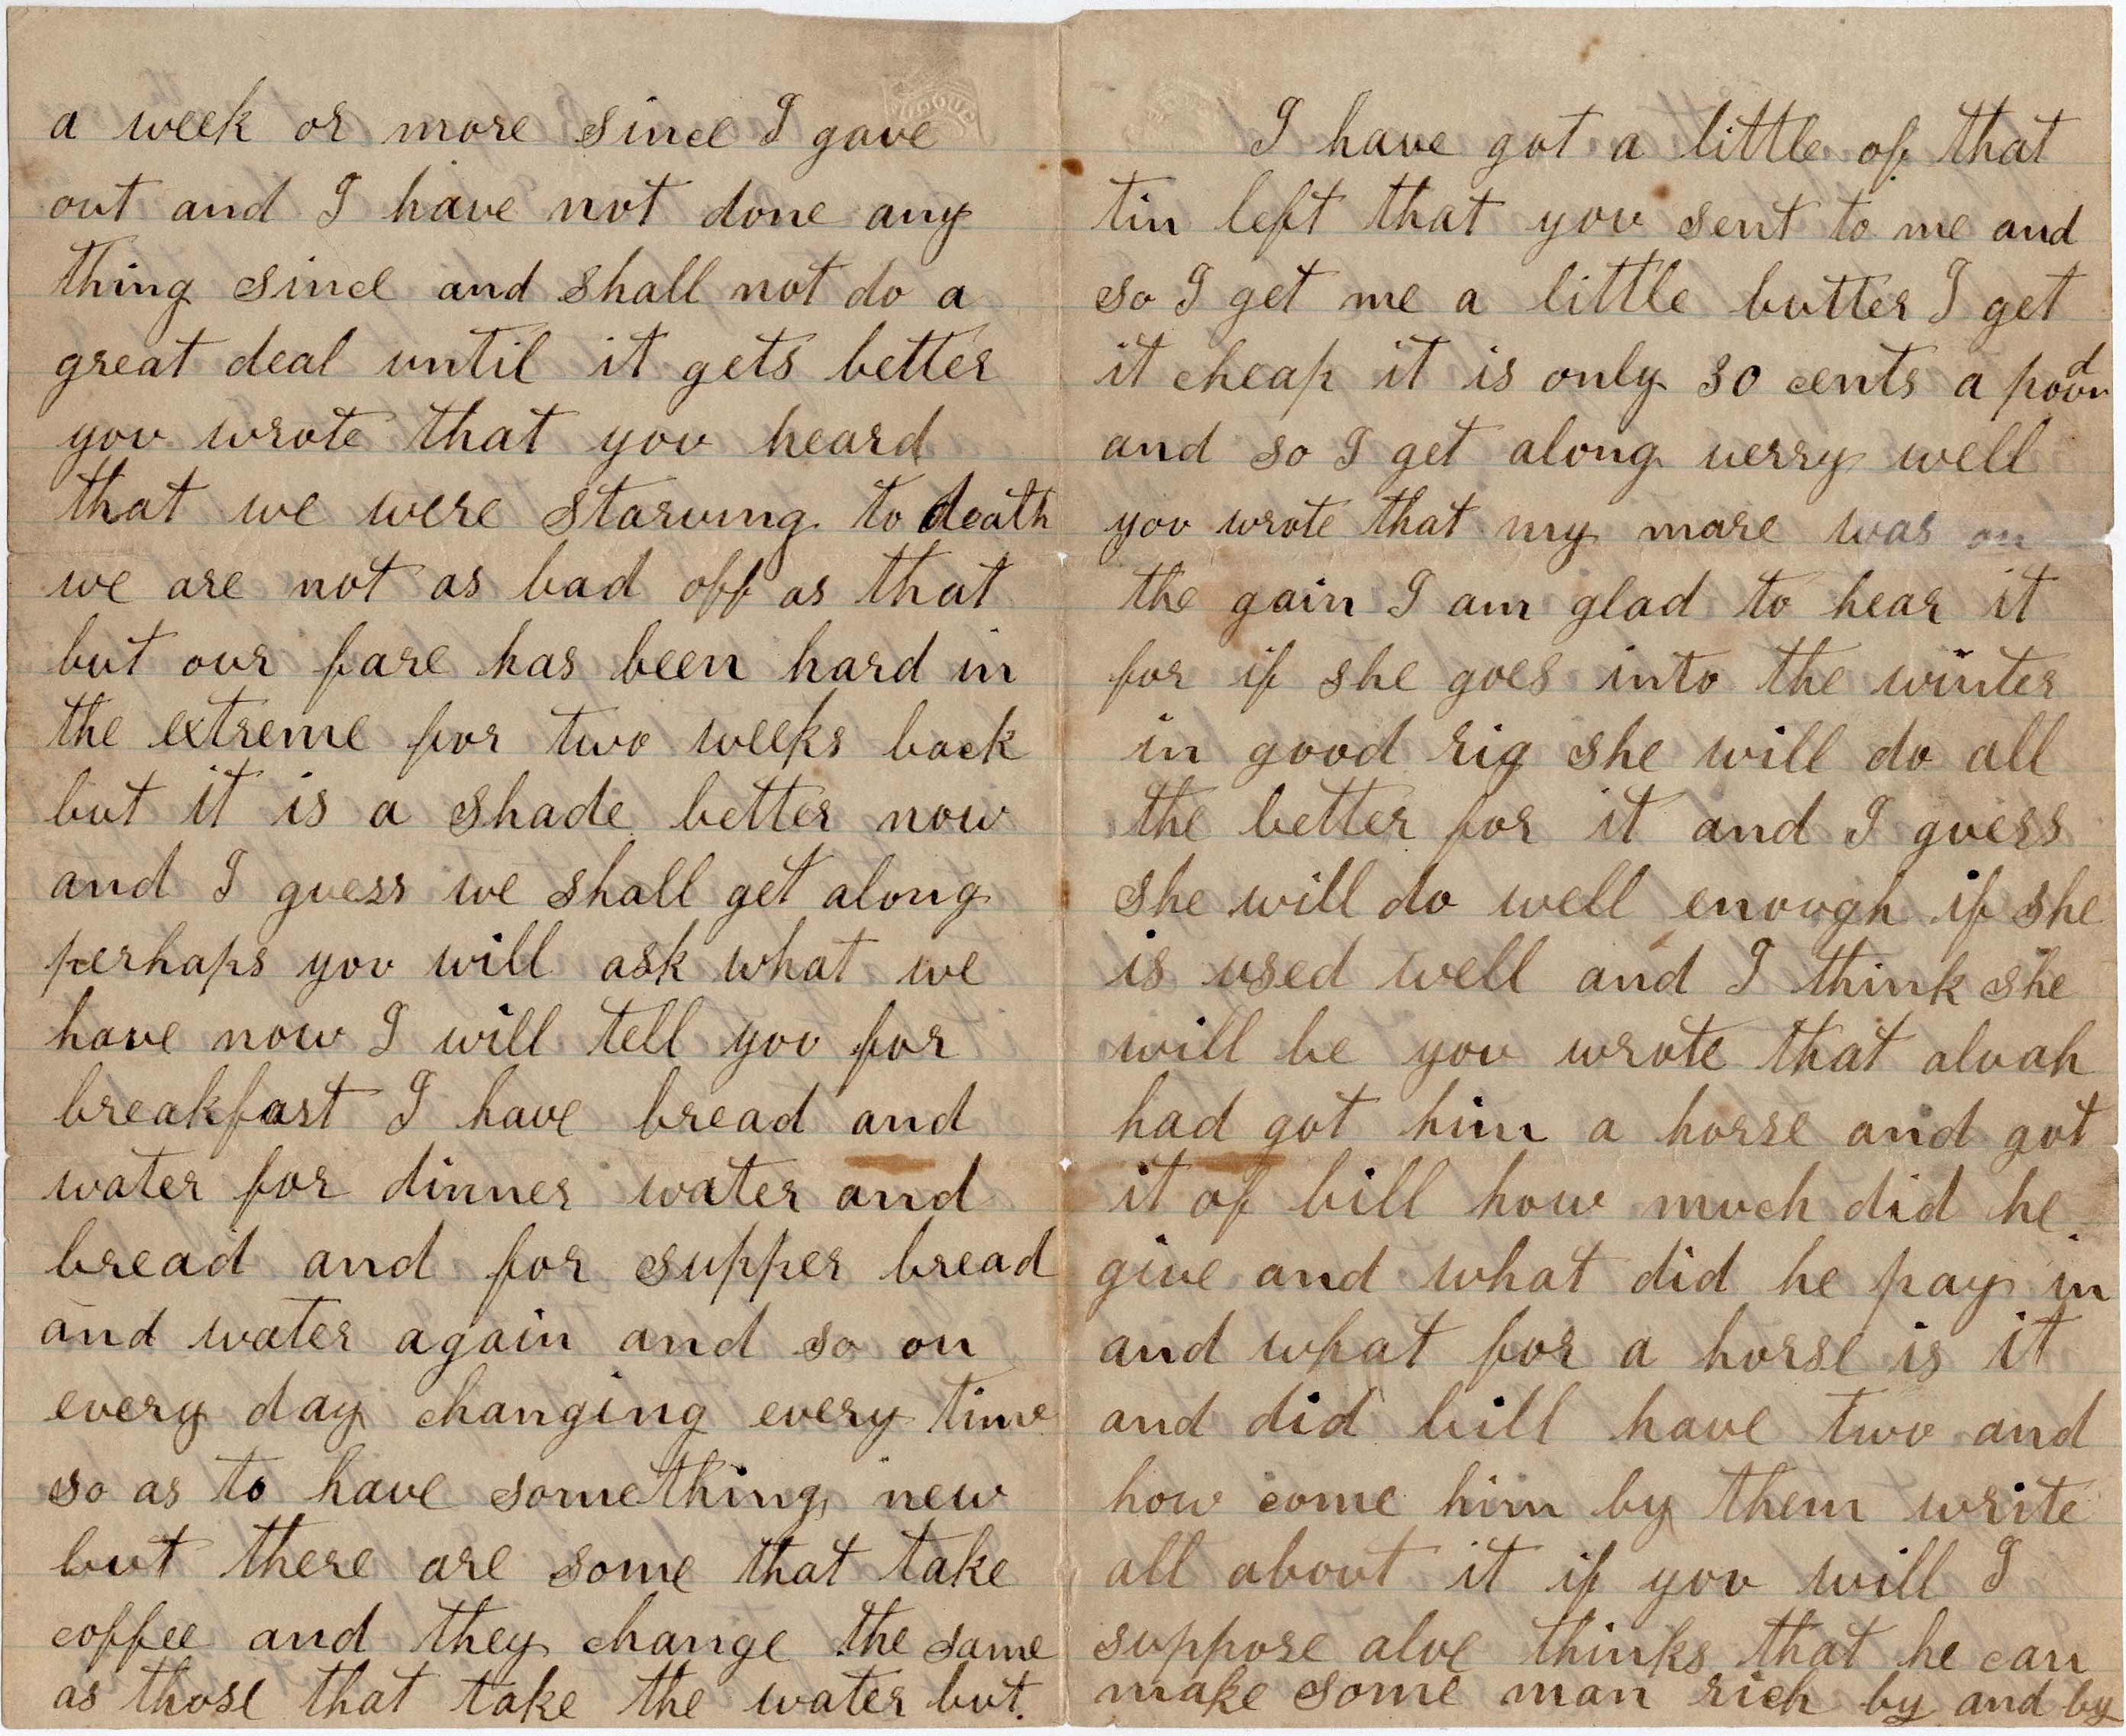 a week or more since I gave
out and I have not done any
thing since and shall not do a
great deal until it gets better
you wrote that you heard
that we were starving to death
we are not as bad off as that
but our fare has been hard in
the extreme for two weeks back
but it is a shade better now
and I guess we shall get along
perhaps you will ask what we
have now I will tell you for
breakfast I have bread and
water for dinner water and
bread and for supper bread
and water again and so on
every day changing every time
so as to have something new
but there are some that take
coffee and they change the same
as those that take the water but.
I have got a little of that
tin left that you sent to me and
so I get me a little butter I get
it cheap it is only 30 cents a pound
and so I get along verry well
you wrote that my mare was on
the gain I am glad to hear it
for if she goes into the winter
in good rig she will do all
the better for it and I guess
she will do well enough if she
is used well and I think she
will be you wrote that alvah
had got him a horse and got
it of bill how much did he
give and what did he pay in
and what for a horse is it
and did bill have two and
how come him by them write
all about it if you will I
suppose alve thinks that he can
make some man rich by and by